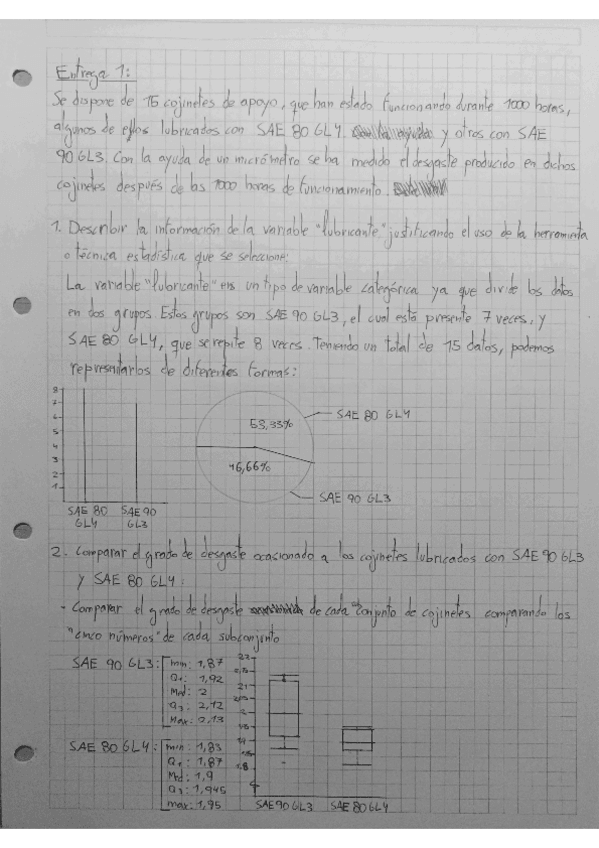 Entrega 1:
Se dispone de 15 cojinetes de apoyo, que han estado funcionando durante 1000 horas,
algunos de ellos lubricados con SAE 80 GL4. y otros con SAE
90 GL3. Con la ayuda de un micrómetro se ha medido el desgaste producido en dichos
cojinetes después de las 1000 horas de funcionamiento.
1. Describir la información de la variable "lubricante" justificando el uso de la herramienta
o técnica estadística que se seleccione:
La variable "lubricante" es un tipo de variable categórica ya que divide los datos
en dos grupos. Estos grupos son SAE 90 GL3, el cual está presente 7 veces, y
SAE 80 GL4, que se repite 8 veces. Teniendo un total de 15 datos, podemos
representarlos de diferentes formas:
8
7
6
5
4
3
2
1
SAE 80 GL4
SAE 90 GL3
53,33%
SAE 80 GL4
46,66%
SAE 90 GL3
2. Comparar el grado de desgaste ocasionado a los cojinetes lubricados con SAE 90 GL3
y SAE 80 GL4:
- Comparar el grado de desgaste de cada conjunto de cojinetes comparando los
"cinco números" de cada subconjunto
SAE 90 GL3:
min: 1,87
Q1: 1,92
Med: 2
Q3: 2,12
Max: 2,13
SAE 80 GL4:
min: 1,83
Q1: 1,87
Med: 1,9
Q3: 1,945
max: 1,95
2,2
2,1
2
1,8
SAE 90 GL3
SAE 80 GL4